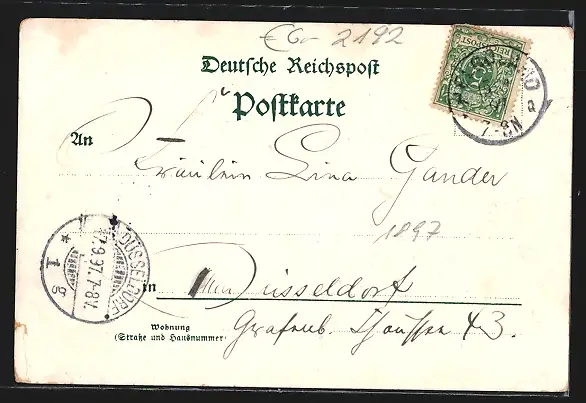 €6,- 2192
Deutsche Reichspost
Postkarte
REICHSPOST
5
7-8N
An Fräulein Lina Gander
1897
DÜSSELDORF
7.9.97.7-8V.
* 1 g
in Düsseldorf
Grafenb. Chaussee 43.
Wohnung
(Straße und Hausnummer)